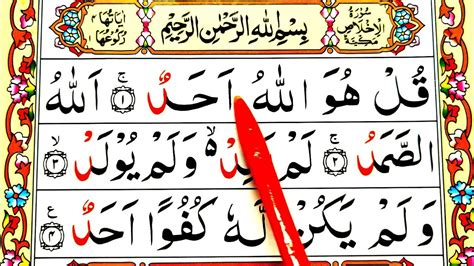 سُورَةُ الْإِخْلَاصِ مَكِّيَّةٌ
بِسْمِ اللهِ الرَّحْمٰنِ الرَّحِيْمِ
اٰيَاتُهَا ٤ رُكُوْعُهَا ١
قُلْ هُوَ اللهُ اَحَدٌ ۚ ١ اَللهُ
الصَّمَدُ ۚ ٢ لَمْ يَلِدْ ۙ وَلَمْ يُوْلَدْ ۙ ٣
وَلَمْ يَكُنْ لَّهٗ كُفُوًا اَحَدٌ ٤ ع